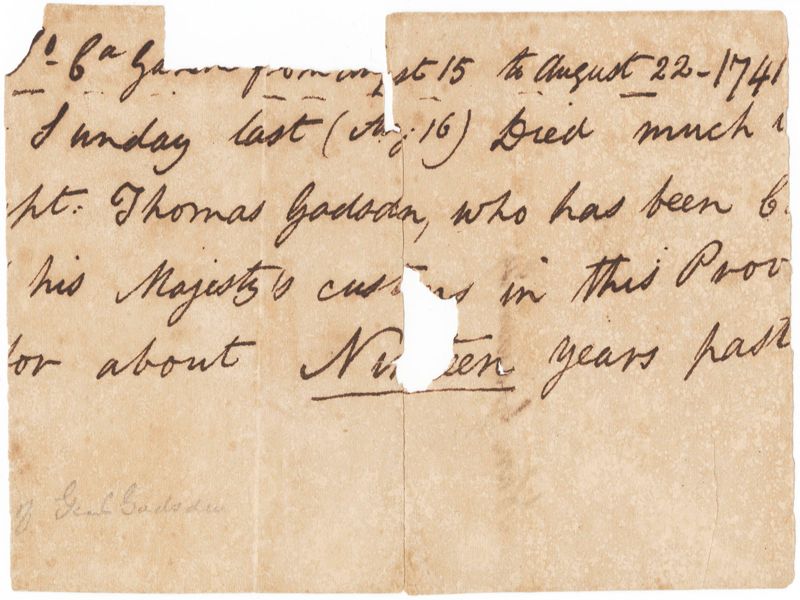 So. Ca Gazette from August 15 to August 22 - 1741
Sunday last (Aug 16) Died much
pt. Thomas Gadsden, who has been C
his Majesty's customs in this Prov
for about Nineteen years past
of Genl. Gadsden